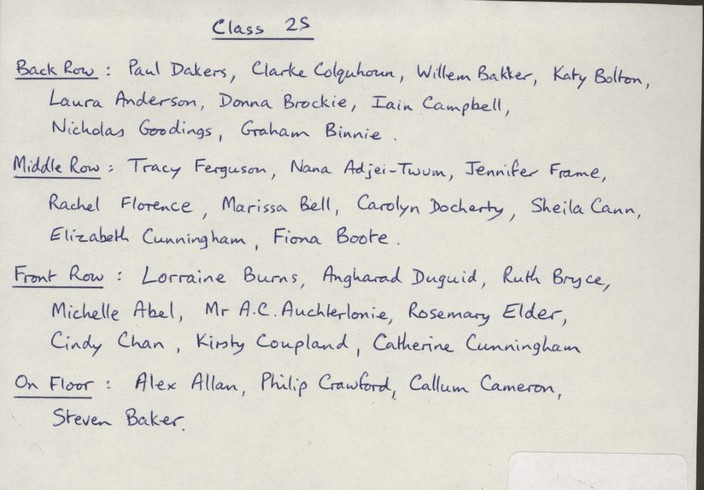 Class 2S
Back Row : Paul Dakers, Clarke Colquhoun, Willem Bakker, Katy Bolton,
Laura Anderson, Donna Brockie, Iain Campbell,
Nicholas Goodings, Graham Binnie.
Middle Row : Tracy Ferguson, Nana Adjei-Twum, Jennifer Frame,
Rachel Florence, Marissa Bell, Carolyn Docherty, Sheila Cann,
Elizabeth Cunningham, Fiona Boote.
Front Row : Lorraine Burns, Angharad Duguid, Ruth Bryce,
Michelle Abel, Mr A.C. Auchterlonie, Rosemary Elder,
Cindy Chan, Kirsty Coupland, Catherine Cunningham
On Floor : Alex Allan, Philip Crawford, Callum Cameron,
Steven Baker.